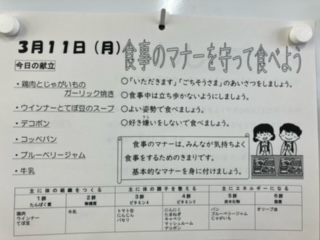 3月11日（月）
食事のマナーを守って食べよう
今日の献立
・鶏肉とじゃがいもの
ガーリック焼き
・ウインナーとてぼ豆のスープ
・デコポン
・コッペパン
・ブルーベリージャム
・牛乳
○「いただきます」「ごちそうさま」のあいさつをしましょう。
○食事中は立ち歩かないようにしましょう。
○よい姿勢で食べましょう。
○好き嫌いをしないで食べましょう。
食事のマナーは、みんなが気持ちよく
食事をするためのきまりです。
基本的なマナーを身に付けましょう。
主に体の組織をつくる
主に体の調子を整える
主にエネルギーになる
1群
2群
3群
4群
5群
6群
たんぱく質
鶏肉
ウインナー
てぼ豆
牛乳
トマト缶
にんじん
パセリ
にんにく
たまねぎ
キャベツ
マッシュルーム
デコポン
パン
ブルーベリージャム
じゃがいも
オリーブ油